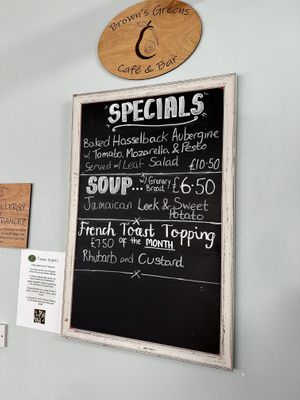 Brown's Greens
Café & Bar
SPECIALS
Baked Hasselback Aubergine
w/ Tomato, Mozzarella & Pesto
Served w/ Leaf Salad £10.50
SOUP... w/ Granary Bread £6.50
Jamaican Leek & Sweet
Potato
French Toast Topping
£7.50 of the MONTH
Rhubarb and Custard